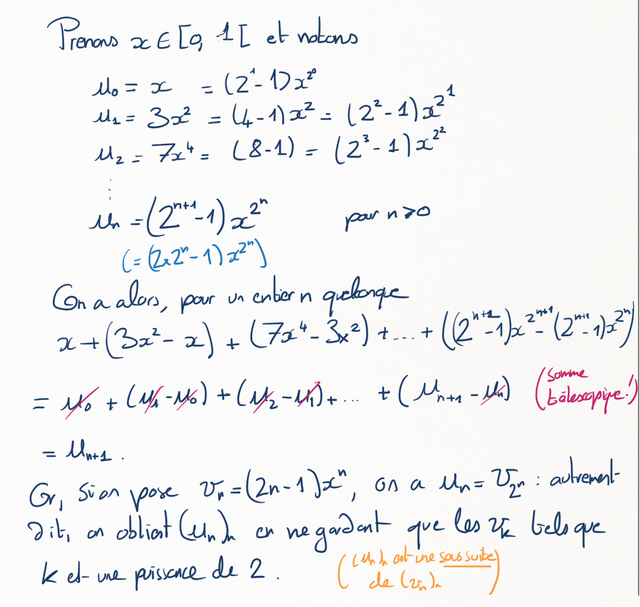 Prenons x ∈ [0, 1[ et notons
u₀ = x = (2¹-1)x^{2⁰}
u₁ = 3x² = (4-1)x² = (2²-1)x^{2¹}
u₂ = 7x⁴ = (8-1) = (2³-1)x^{2²}
⋮
uₙ = (2^{n+1}-1)x^{2ⁿ} pour n ≥ 0
(= (2×2ⁿ-1)x^{2ⁿ})
On a alors, pour un entier n quelconque
x + (3x² - x) + (7x⁴ - 3x²) + ... + ((2^{n+2}-1)x^{2^{n+1}} - (2^{n+1}-1)x^{2ⁿ})
= u₀ + (u₁ - u₀) + (u₂ - u₁) + ... + (u_{n+1} - uₙ) (Somme télescopique!)
= u_{n+1}.
Or, si on pose vₙ = (2n-1)xⁿ, on a uₙ = v_{2ⁿ} : autrement
dit, on obtient (uₙ)ₙ en ne gardant que les v_k tels que
k est une puissance de 2. ((uₙ)ₙ est une sous suite
de (vₙ)ₙ)